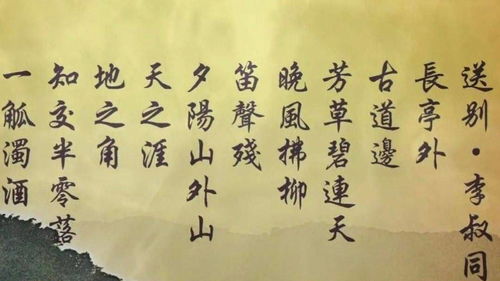 送别·李叔同
長亭外
古道邊
芳草碧連天
晚風拂柳
笛聲殘
夕陽山外山
天之涯
地之角
知交半零落
一觚濁酒